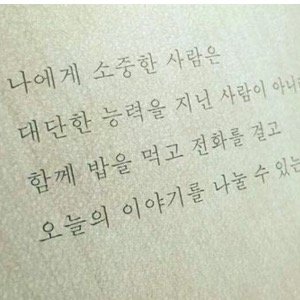 나에게 소중한 사람은
대단한 능력을 지닌 사람이 아니
함께 밥을 먹고 전화를 걸고
오늘의 이야기를 나눌 수 있는